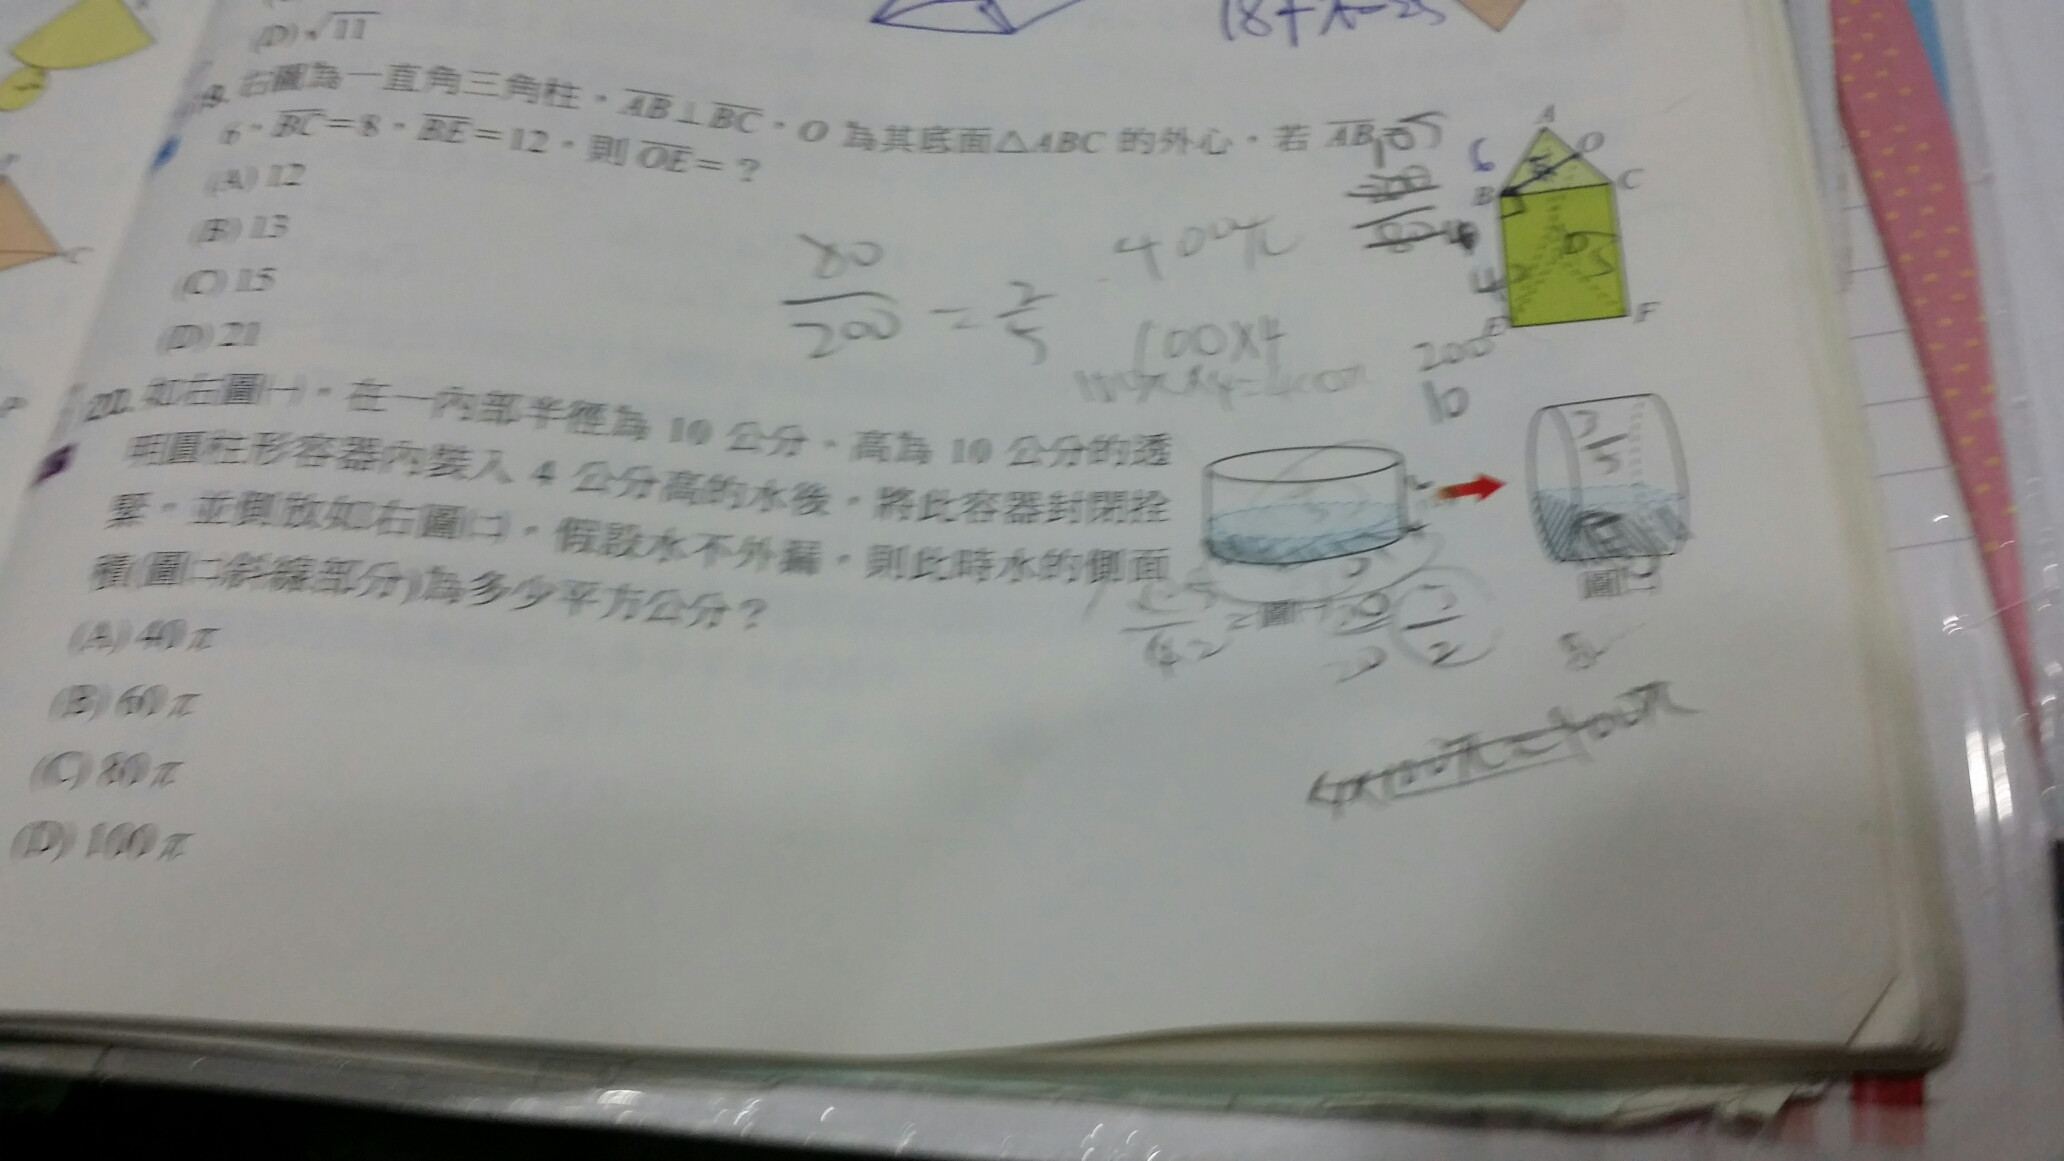 (D)√11
18+
19. 右圖為一直角三角柱，AB⊥BC，O 為其底面△ABC 的外心，若 AB=
6，BC=8，BE=12，則 OE=？
(A) 12
(B) 13
(C) 15
(D) 21
A
O
6
B
C
E
F
80/200 = 2/5
400π
100×4
200
10
20. 如右圖(一)，在一內部半徑為 10 公分、高為 10 公分的透
明圓柱形容器內裝入 4 公分高的水後，將此容器封閉拴
緊，並倒放如右圖(二)，假設水不外漏，則此時水的側面
積(圖二斜線部分)為多少平方公分？
(A) 40π
(B) 60π
(C) 80π
(D) 100π
3/5
圖一
圖二
4×100π=400π